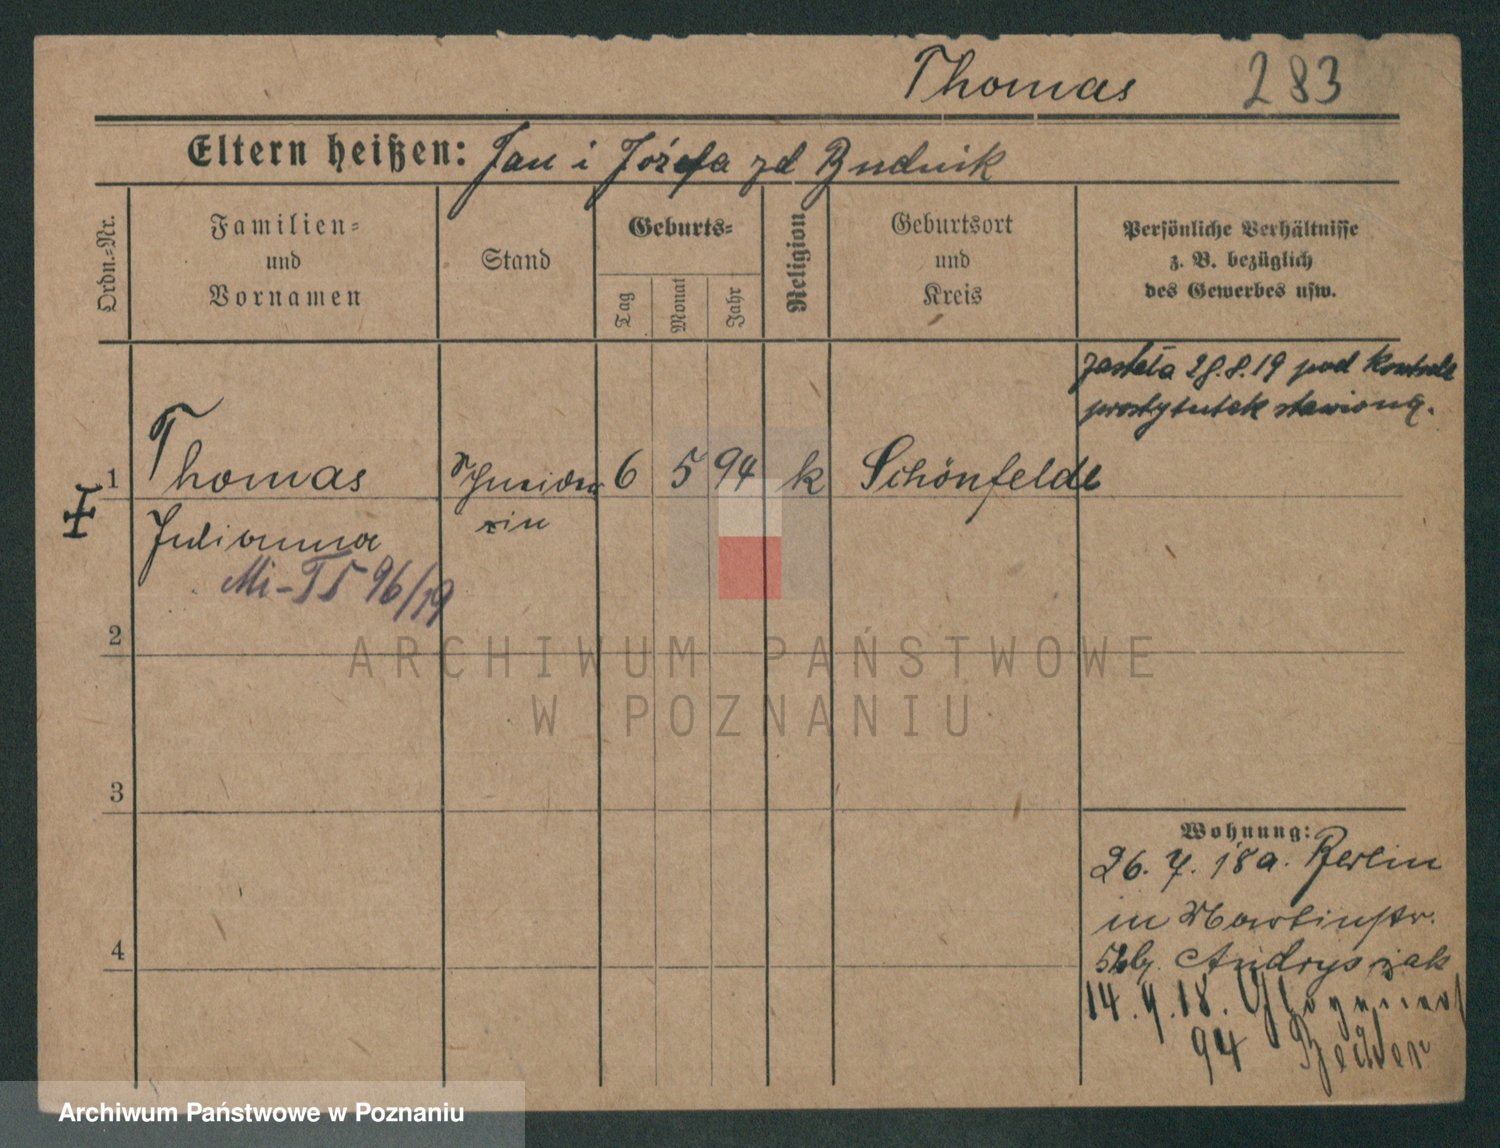 Thomas 283
Eltern heißen: Jan i Józefa zd Budnik
Ordn.-Nr.
Familien-
und
Vornamen
Stand
Geburts-
Tag
Monat
Jahr
Religion
Geburtsort
und
Kreis
Persönliche Verhältnisse
z. B. bezüglich
des Gewerbes usw.
została 28.8.19 pod kontrolę
prostytutek stawioną.
1 Thomas Schneide- 6 5 94 k Schönfelde
rin
Julianna
Mi-T5 96/19
2
3
4
Wohnung:
26. 7. 18 a. Berlin
in Martinstr.
Andryszak
14. 9. 18.
94 Becker
ARCHIWUM PAŃSTWOWE
W POZNANIU
Archiwum Państwowe w Poznaniu